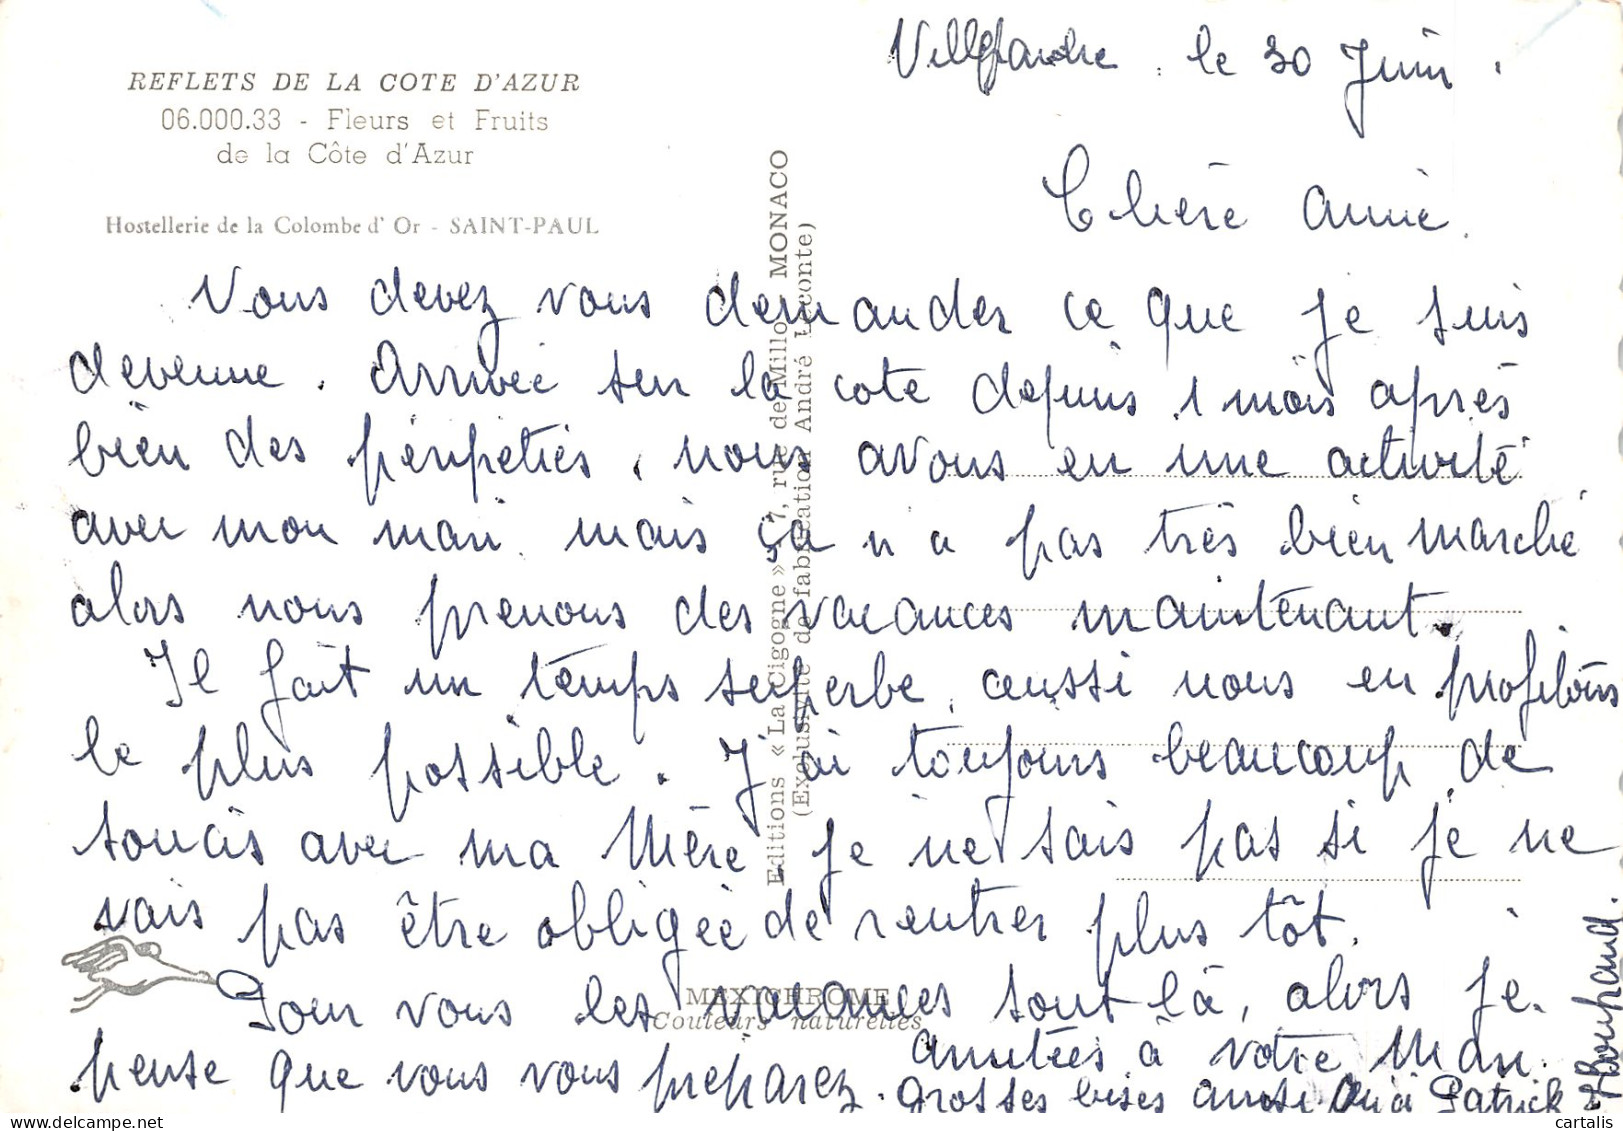 REFLETS DE LA COTE D'AZUR
06.000.33 - Fleurs et Fruits
de la Côte d'Azur
Hostellerie de la Colombe d'Or - SAINT-PAUL
Editions « La Cigogne » 7, rue de Millo MONACO
(Exclusivité de fabrication André Leconte)
MEXICHROME
Couleurs naturelles
le 30 Juin.
Chère Annie.
Vous devez vous demander ce que je suis
devenue. Arrivée sur la cote depuis 1 mois après
bien des péripéties, nous avons eu une activité
avec mon mari. mais ça n'a pas très bien marché
alors nous prenons des vacances maintenant.
Il fait un temps superbe, aussi nous en profitons
le plus possible. J'ai toujours beaucoup de
soucis avec ma Mère, je ne sais pas si je ne
vais pas être obligée de rentrer plus tôt.
Pour vous les vacances sont là, alors je
pense que vous vous préparez.
Amitiés à votre Mari.
Grosses bises ainsi qu'à Patrick
cartalis